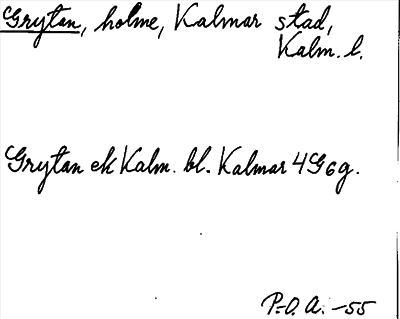 Grytan, holme, Kalmar stad,
Kalm. l.
Grytan ek Kalm. bl. Kalmar 4G6g.
P.-O. A. -55